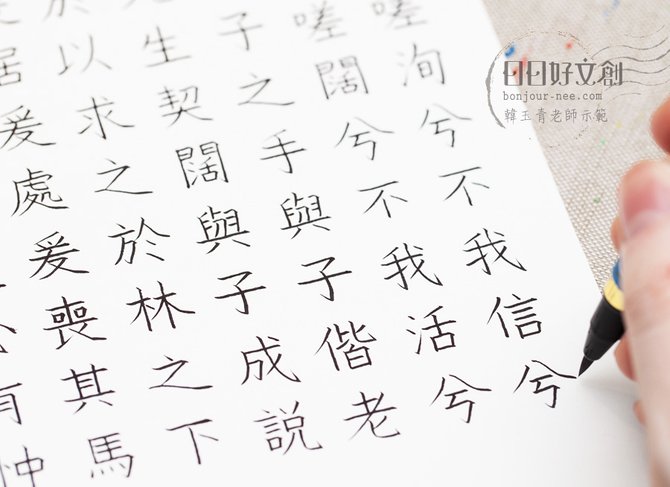 嗟洵兮不我信兮
嗟闊兮不我活兮
子之手與子偕老
生契闊與子成説
於以求之於林之下
居爰處爰喪其馬
有忡
日日好文創
bonjour-nee.com
韓玉青老師示範